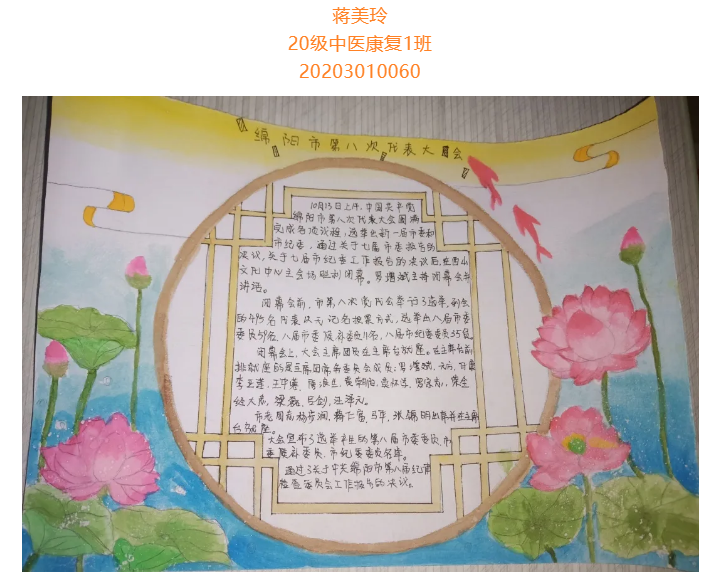 蒋美玲
20级中医康复1班
20203010060
绵阳市第八次代表大会
10月13日上午,中国共产党
绵阳市第八次代表大会圆满
完成各项议程,选举出新一届市委和
市纪委,通过关于七届市委报告的
决议,关于七届市纪委工作报告的决议后,在
文阳中心主会场胜利闭幕。罗增斌主持闭幕会并
讲话。
闭幕会前,市第八次党代会举行了选举。到会
的495名代表以无记名投票方式,选举出八届市委
委员59名,八届市委候补委员11名,八届市纪委委员35名。
闭幕会上,大会主席团员在主席台就座。在主席台前
排就座的是主席团常务委员会成员:罗增斌、元方、
李亚莲、王中
梁巍、吕剑、汪泽元。
市老同志
台就座。
大会宣布了选举产生的第八届市委委员、市
委候补委员、市纪委委员名单。
通过了关于中共绵阳市第八届纪律
检查委员会工作报告的决议。